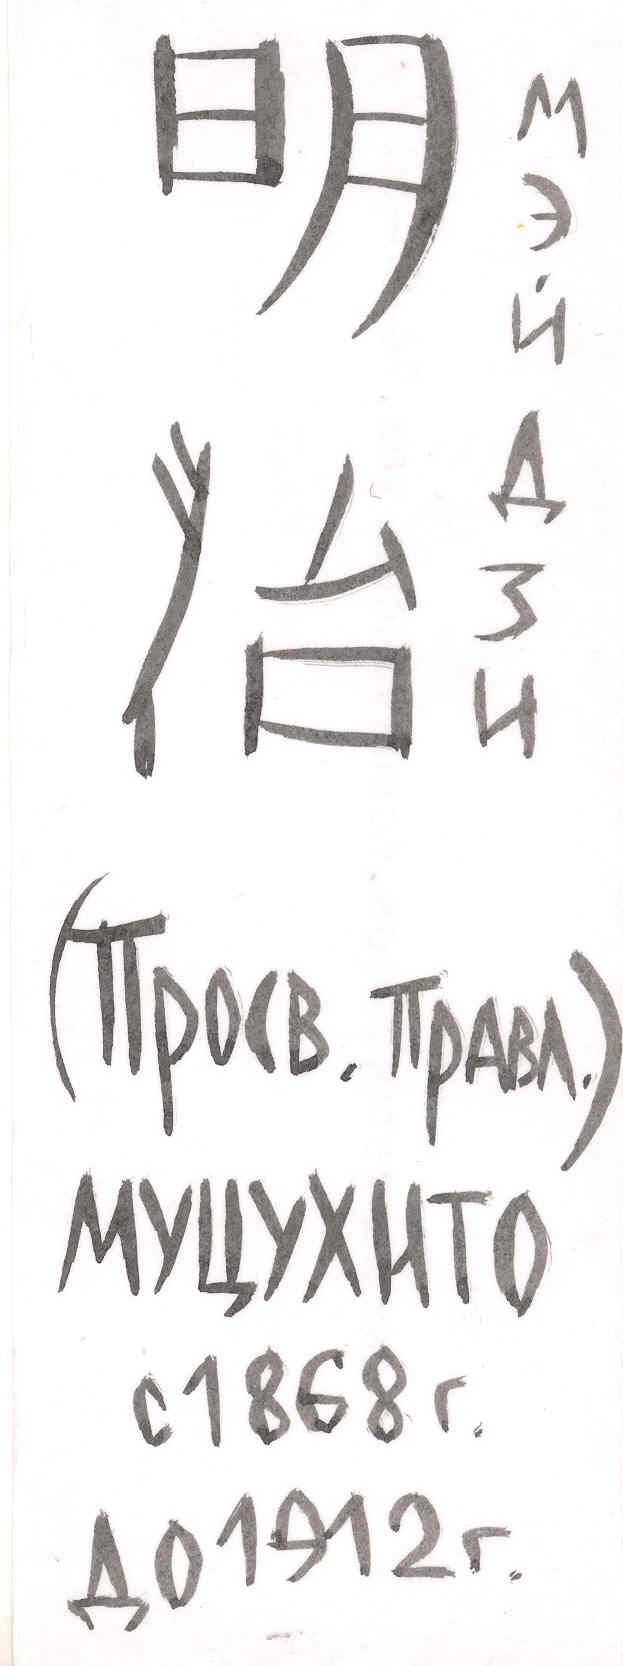 明治
МЭЙДЗИ
(Просв. правл.)
МУЦУХИТО
с 1868 г.
до 1912 г.